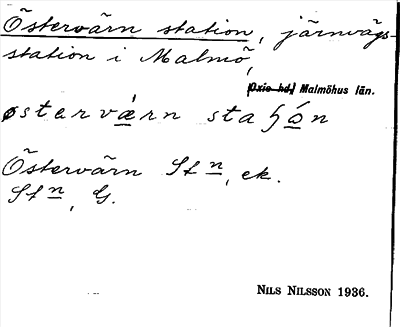 Östervärn station, järnvägs-
station i Malmö,
[Oxie hd.] Malmöhus län.
østervæ̀rn staʖón
Östervärn St n, ek.
St n, G.
NILS NILSSON 1936.